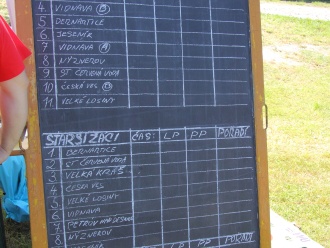 4. VIDNAVA B
5 BERNARTICE
6 JESENÍK
7 VIDNAVA A
8 NÝZNEROV
9 ST. ČERVENÁ VODA
10 ČESKÁ VES
11 VELKÉ LOSINY
STARŠÍ ŽÁCI ČAS: LP PP POŘADÍ
1 BERNARTICE
2 ST ČERVENÁ VODA
3 VELKÁ KRAŠ
4 ČESKÁ VES
5 VELKÉ LOSINY
6 VIDNAVA
7
8 NÝZNEROV
LP PP POŘADÍ